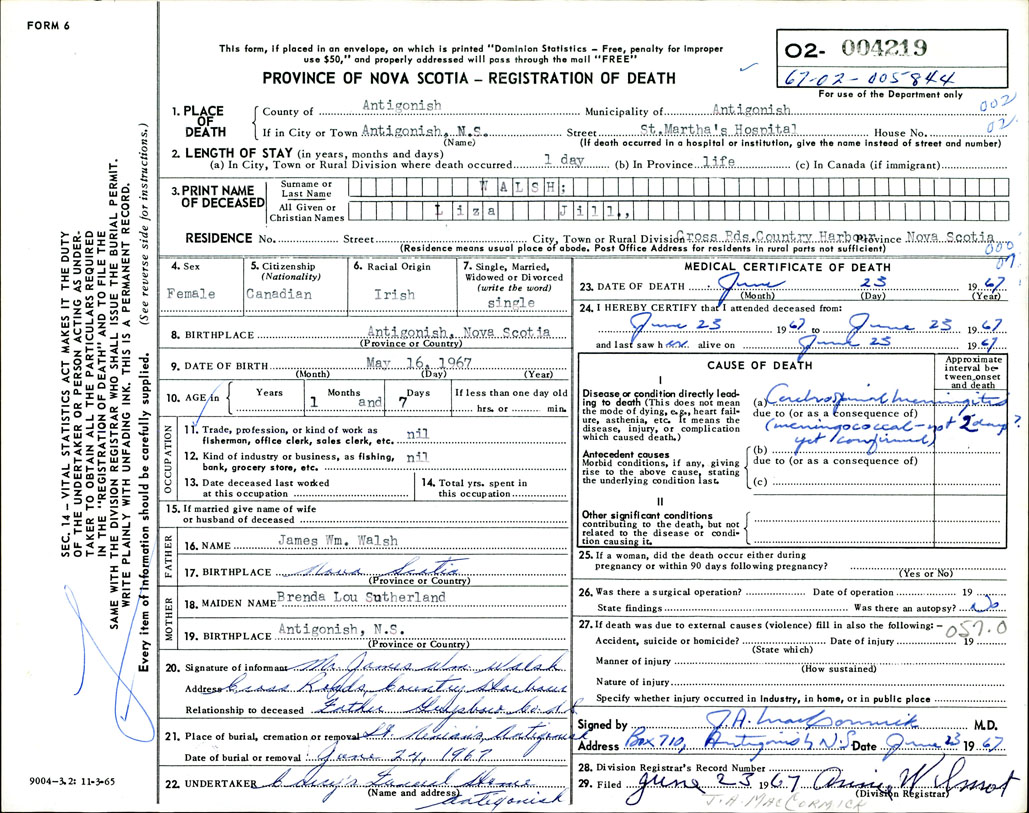 FORM 6
This form, if placed in an envelope, on which is printed "Dominion Statistics – Free, penalty for improper
use $50," and properly addressed will pass through the mail "FREE"
PROVINCE OF NOVA SCOTIA – REGISTRATION OF DEATH
O2- 004219
67-02-005844
For use of the Department only
002
02
1. PLACE OF DEATH
County of Antigonish Municipality of Antigonish
If in City or Town Antigonish, N.S. Street St.Martha's Hospital House No.
(Name) (If death occurred in a hospital or institution, give the name instead of street and number)
2. LENGTH OF STAY (in years, months and days)
(a) In City, Town or Rural Division where death occurred 1 day (b) In Province life (c) In Canada (if immigrant)
3. PRINT NAME OF DECEASED
Surname or Last Name WALSH:
All Given or Christian Names Liza Jill,,
RESIDENCE No. Street City, Town or Rural Division Cross Rds.Country Harbour Province Nova Scotia
(Residence means usual place of abode. Post Office Address for residents in rural parts not sufficient)
000
07
4. Sex Female
5. Citizenship (Nationality) Canadian
6. Racial Origin Irish
7. Single, Married, Widowed or Divorced (write the word) single
8. BIRTHPLACE Antigonish, Nova Scotia
(Province or Country)
9. DATE OF BIRTH May 16, 1967
(Month) (Day) (Year)
10. AGE in Years Months Days If less than one day old
1 and 7 hrs. or min.
OCCUPATION
11. Trade, profession, or kind of work as
fisherman, office clerk, sales clerk, etc. nil
12. Kind of industry or business, as fishing,
bank, grocery store, etc. nil
13. Date deceased last worked
at this occupation
14. Total yrs. spent in
this occupation
15. If married give name of wife
or husband of deceased
FATHER
16. NAME James Wm. Walsh
17. BIRTHPLACE Nova Scotia
(Province or Country)
MOTHER
18. MAIDEN NAME Brenda Lou Sutherland
19. BIRTHPLACE Antigonish, N.S.
(Province or Country)
20. Signature of informant Mr James Wm. Walsh
Address Cross Roads Country Harbour
Relationship to deceased Father Guysboro Co. N.S
21. Place of burial, cremation or removal St. Ninians Antigonish
Date of burial or removal June 24, 1967
22. UNDERTAKER Funeral Home
(Name and address) Antigonish
MEDICAL CERTIFICATE OF DEATH
23. DATE OF DEATH June 23 1967
(Month) (Day) (Year)
24. I HEREBY CERTIFY that I attended deceased from:
June 23 1967 to June 23 1967
and last saw h alive on June 23 1967
CAUSE OF DEATH
Approximate interval between onset and death
I
Disease or condition directly leading to death (This does not mean
the mode of dying, e.g., heart failure, asthenia, etc. It means the
disease, injury, or complication
which caused death.)
(a) Cerebrospinal meningitis
due to (or as a consequence of)
(meningococcal - not 2 days?
yet confirmed)
(b)
Antecedent causes
Morbid conditions, if any, giving
rise to the above cause, stating
the underlying condition last.
due to (or as a consequence of)
(c)
II
Other significant conditions
contributing to the death, but not
related to the disease or condition causing it.
25. If a woman, did the death occur either during
pregnancy or within 90 days following pregnancy?
(Yes or No)
26. Was there a surgical operation? Date of operation 19
State findings Was there an autopsy? No
27. If death was due to external causes (violence) fill in also the following: – 057.0
Accident, suicide or homicide? Date of injury 19
(State which)
Manner of injury
(How sustained)
Nature of injury
Specify whether injury occurred in Industry, in home, or in public place
Signed by J.A. MacCormick M.D.
Address Box 710, Antigonish N.S. Date June 23 1967
28. Division Registrar's Record Number
29. Filed June 23 1967
(Division Registrar)
J.A. MACCORMICK
SEC. 14 – VITAL STATISTICS ACT MAKES IT THE DUTY
OF THE UNDERTAKER OR PERSON ACTING AS UNDER-
TAKER TO OBTAIN ALL THE PARTICULARS REQUIRED
IN THE "REGISTRATION OF DEATH" AND TO FILE THE
SAME WITH THE DIVISION REGISTRAR WHO SHALL ISSUE THE BURIAL PERMIT.
WRITE PLAINLY WITH UNFADING INK. THIS IS A PERMANENT RECORD.
Every item of information should be carefully supplied. (See reverse side for instructions.)
9004–3.2: 11-3-65